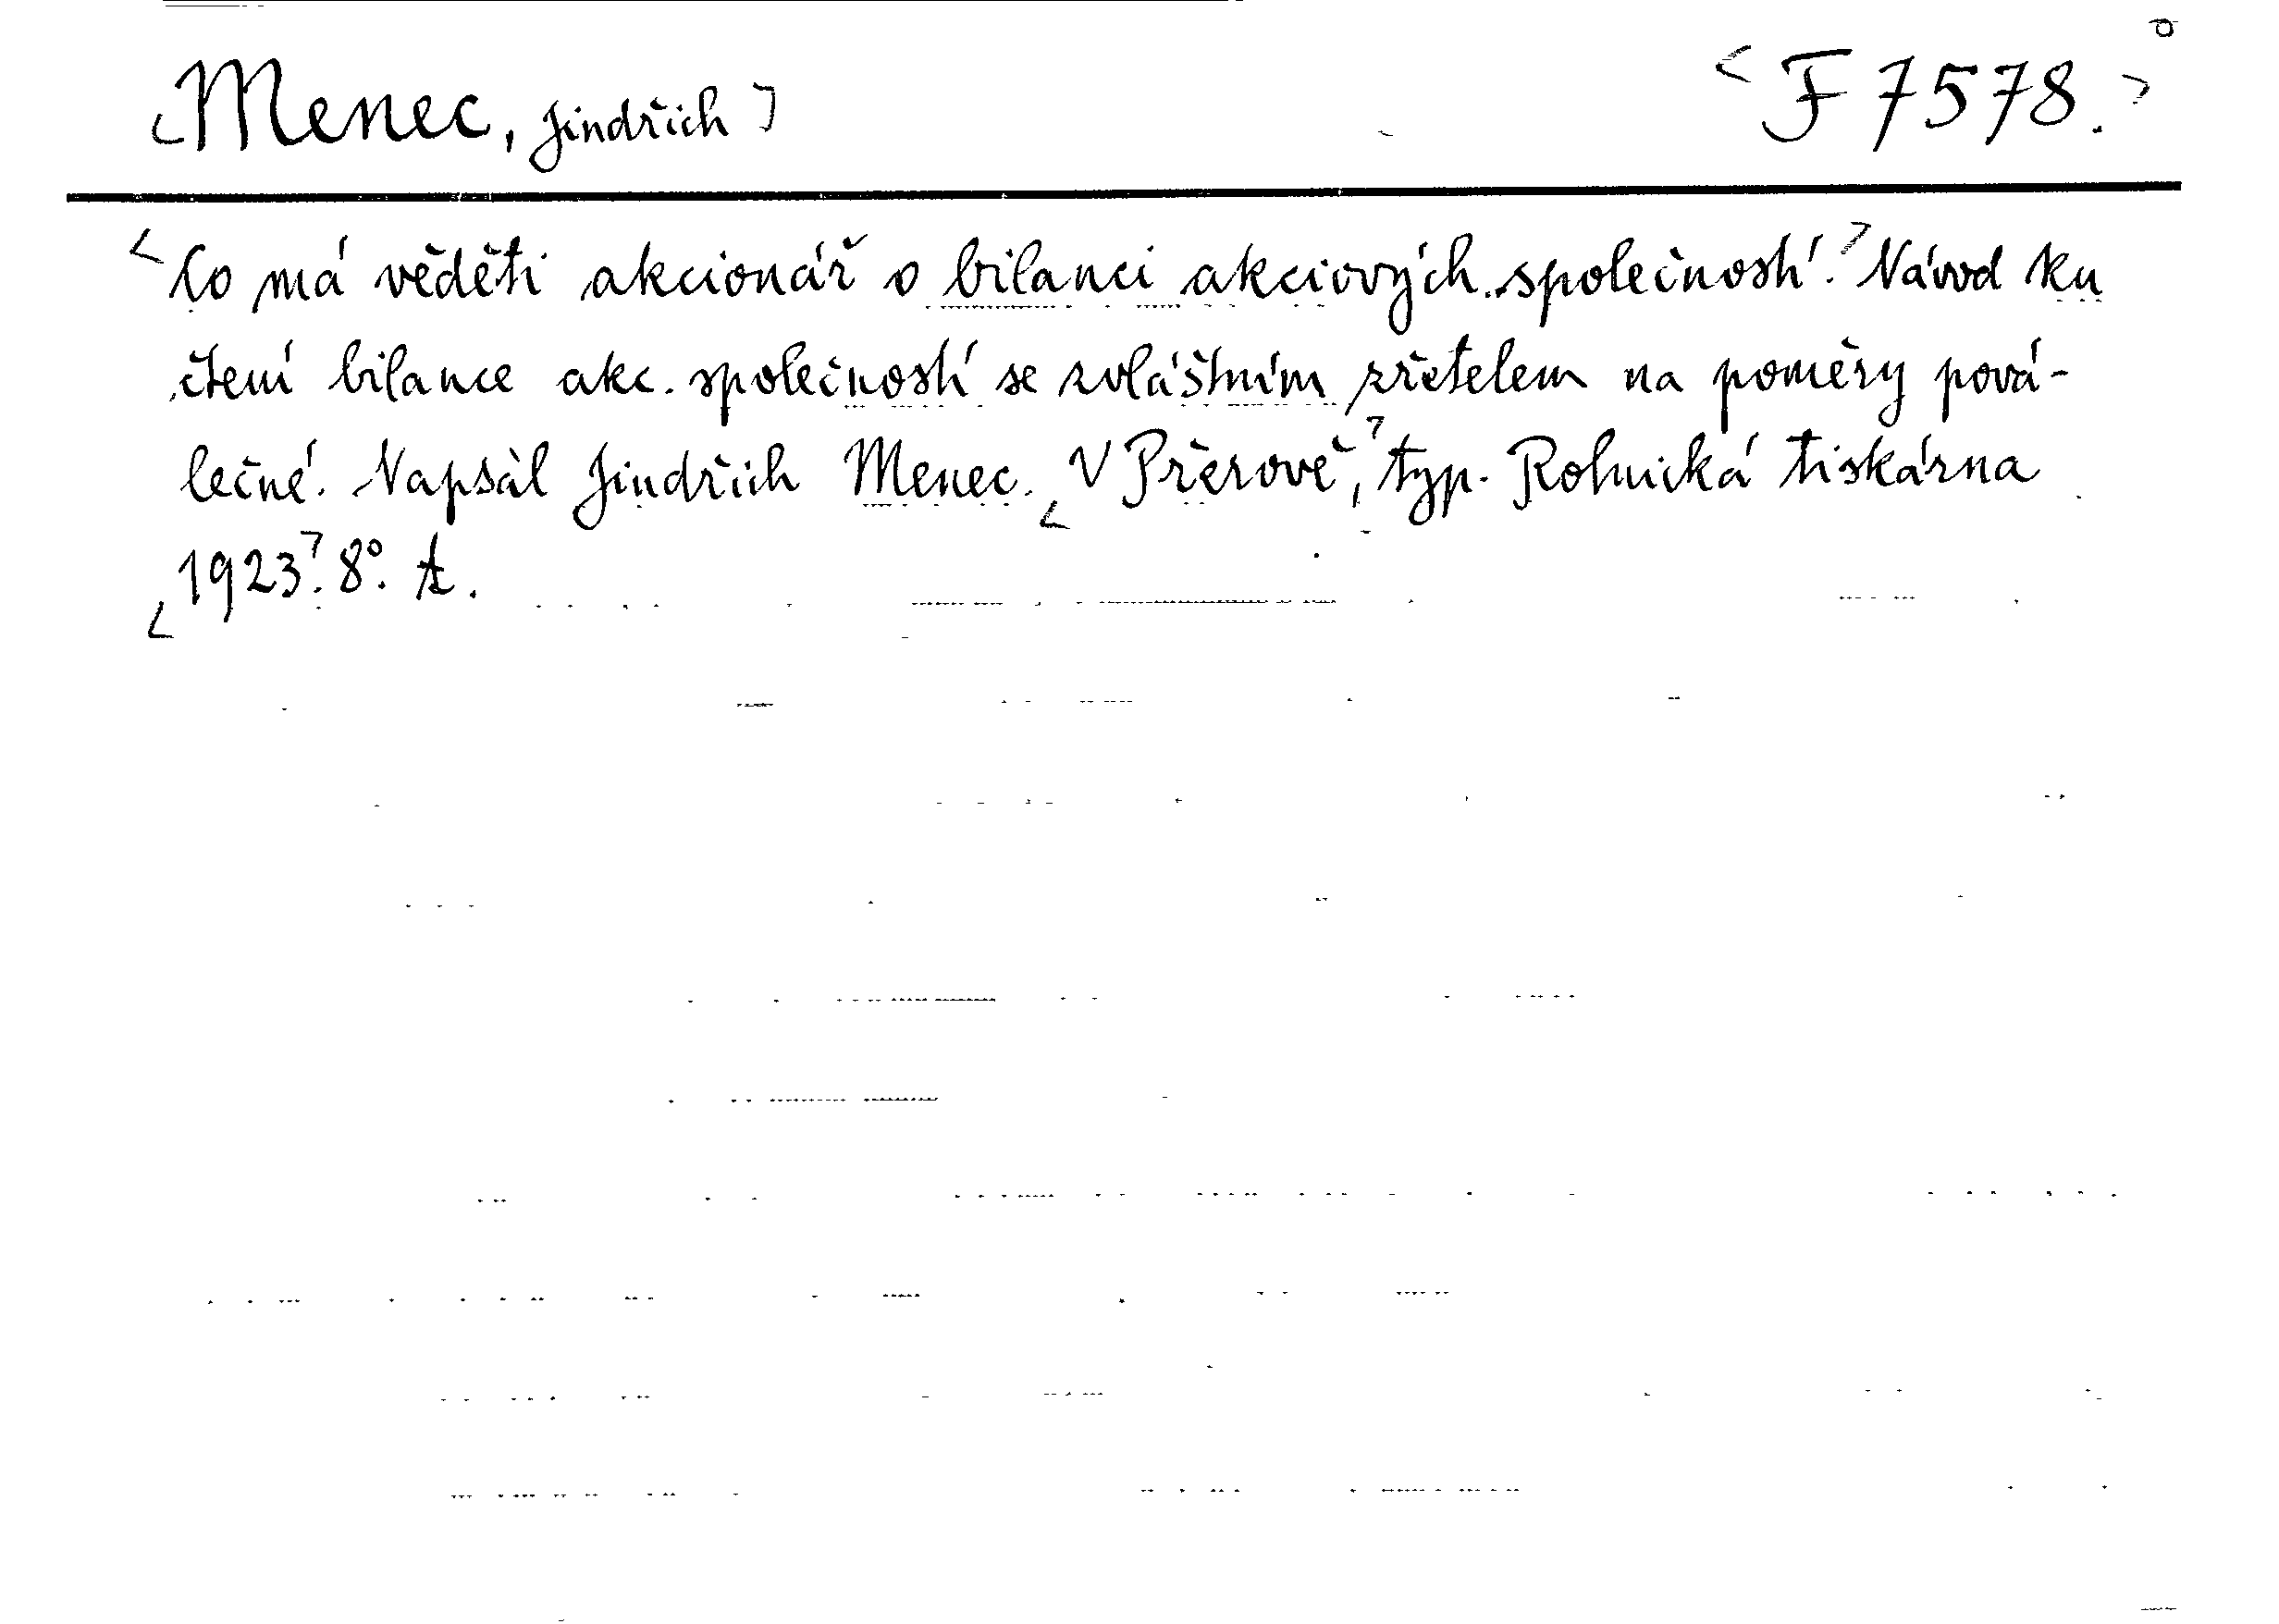 Menec, Jindřich
F 7578.
Co má věděti akcionář o bilanci akciových společností. Návod ku
čtení bilance akc. společností se zvláštním zřetelem na poměry pová-
lečné. Napsal Jindřich Menec. V Přerově, typ. Rolnická tiskárna
1923. 8°. A.